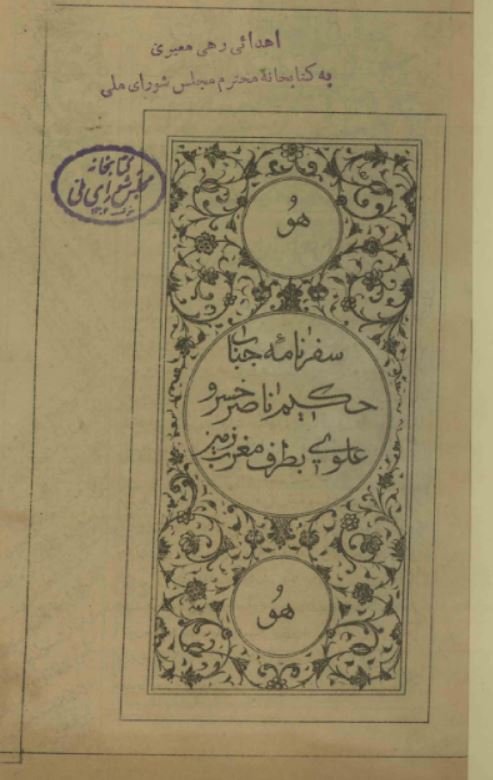 اهدائی رهی معیری
به کتابخانهٔ محترم مجلس شورای ملی
کتابخانه
مجلس شورای ملی
هو
سفرنامهٔ جناب
حکیم ناصر خسرو
علوی بطرف مغرب زمین
هو